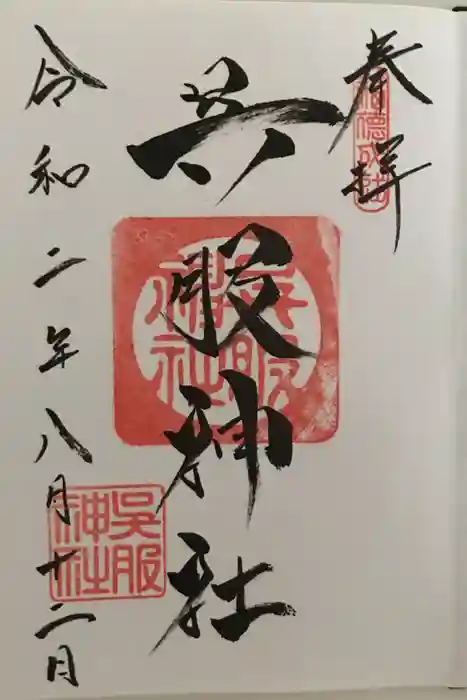 奉拝
呉服神社
令和二年八月十二日
呉服神社
呉服神社